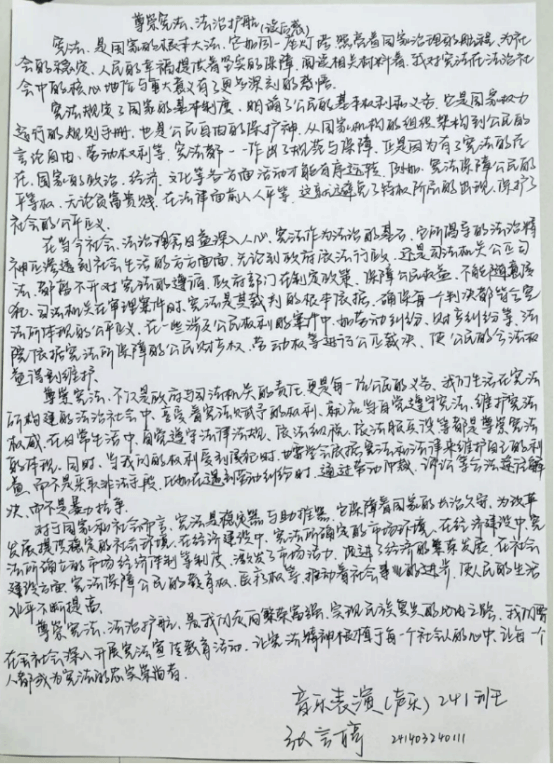 尊崇宪法、法治护航(读后感)
宪法,是国家的根本大法,它如同一座灯塔,照亮着国家治理的航程,为社
会的稳定、人民的幸福提供着坚实的保障。阅读相关材料后,我对宪法在法治社
会中的核心地位与重大意义有了更为深刻的感悟。
宪法规定了国家的基本制度,明确了公民的基本权利和义务。它是国家权力
运行的规则手册,也是公民自由的保护神。从国家机构的组织架构到公民的
言论自由、劳动权利等,宪法都一一作出了规范与保障。正是因为有了宪法的存
在,国家的政治、经济、文化等各方面活动才能有序运转。例如,宪法保障公民的
平等权,无论贫富贵贱,在法律面前人人平等,这就避免了特权阶层的出现,保护了
社会的公平正义。
在当今社会,法治理念日益深入人心,宪法作为法治的基石,它所倡导的法治精
神正渗透到社会生活的方方面面。无论到政府依法行政,还是司法机关公正司
法,都离不开对宪法的遵循。政府部门在制定政策,保障公民权益,不能随意侵
犯。司法机关在审理案件时,宪法是其裁判的根本依据,确保每一个判决都符合宪
法所体现的公平正义。在一些涉及公民权利的案件中,如劳动纠纷、财产纠纷等,法
院依据宪法所保障的公民财产权、劳动权等进行公正裁决,使公民的合法权
益得到维护。
尊崇宪法,不仅是政府与司法机关的责任,更是每一位公民的义务。我们生活在宪法
所构建的法治社会中,享受着宪法赋予的权利,就应当自觉遵守宪法、维护宪法
权威。在日常生活中,自觉遵守法律法规,依法纳税,依法服兵役等都是尊崇宪法
的体现。同时,当我们的权利受到侵犯时,也要学会依据宪法和法律来维护自己的利
益,而不是采取非法手段,比如在遇到劳动纠纷时,通过劳动仲裁、诉讼等合法途径解
决,而不是暴力抗争。
对于国家和社会而言,宪法是稳定器与助推器。它保障着国家的长治久安,为改革
发展提供稳定的社会环境。在经济建设中,宪法所确定的市场环境,在经济建设中,宪
法所确立的市场经济体制等制度,激发了市场活力,促进了经济的繁荣发展。在社会
建设方面,宪法保障公民的教育权、医疗权等,推动着社会事业的进步,使人民的生活
水平不断提高。
尊崇宪法,法治护航,是我们走向繁荣富强、实现民族复兴的必由之路。我们需
在全社会深入开展宪法宣传教育活动,让宪法精神根植于每一个社会人的心中,让每一个
人都成为宪法的忠实崇尚者。
音乐表演(声乐)241班
241403240111